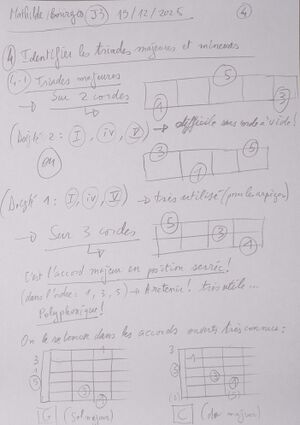 Mathilde Bourges (J3) 19/12/2025 (4)
(4) Identifier les triades majeures et mineures
4.1 Triades majeures
→ Sur 2 cordes
5
1
(Doigté 2 : I, iv, V) → difficile sans corde à vide !
ou
3 5
1
(Doigté 1 : I, iv, V) → très utilisé (pour les arpèges)
→ Sur 3 cordes
5
3
1
C'est l'accord majeur en position serrée !
(dans l'ordre : 1, 3, 5) → A retenir ! très utile...
Polyphonique !
On le retrouve dans les accords ouverts très connus :
3
1
5
3
1
3
1
5
3
1
G (Sol majeur) C (do majeur)